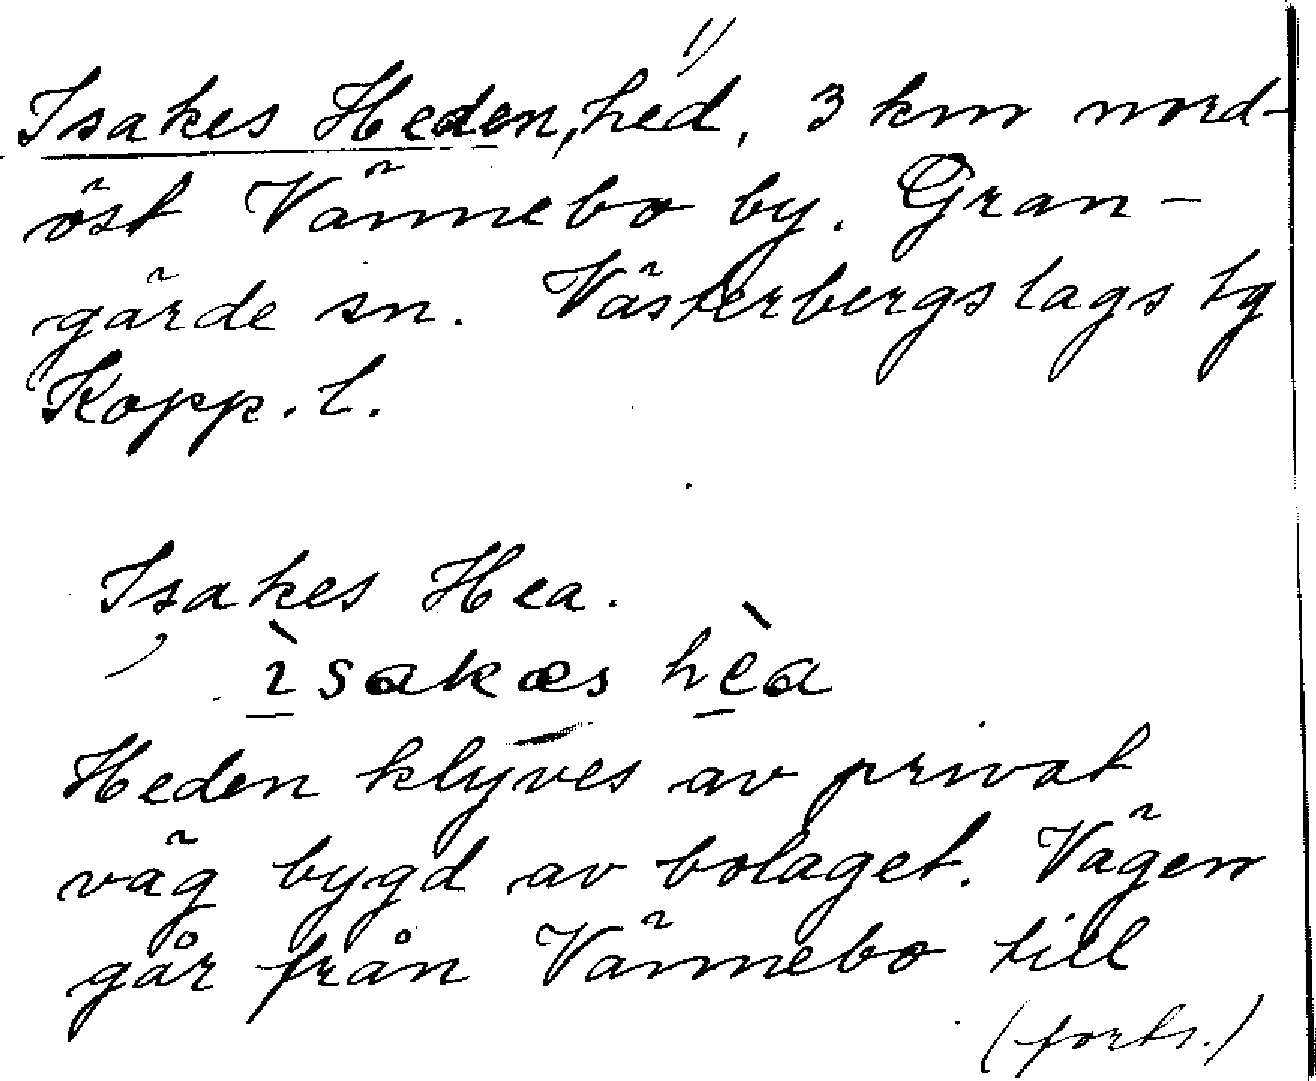 1)
Isakes Heden, hed, 3 km nord-
öst Vännebo by. Gran-
gärde sn. Västerbergslags tg
Kopp. l.
Isakes Hea.
ìsakæs hèa
Heden klyves av privat
väg bygd av bolaget. Vägen
går från Vännebo till
(forts.)